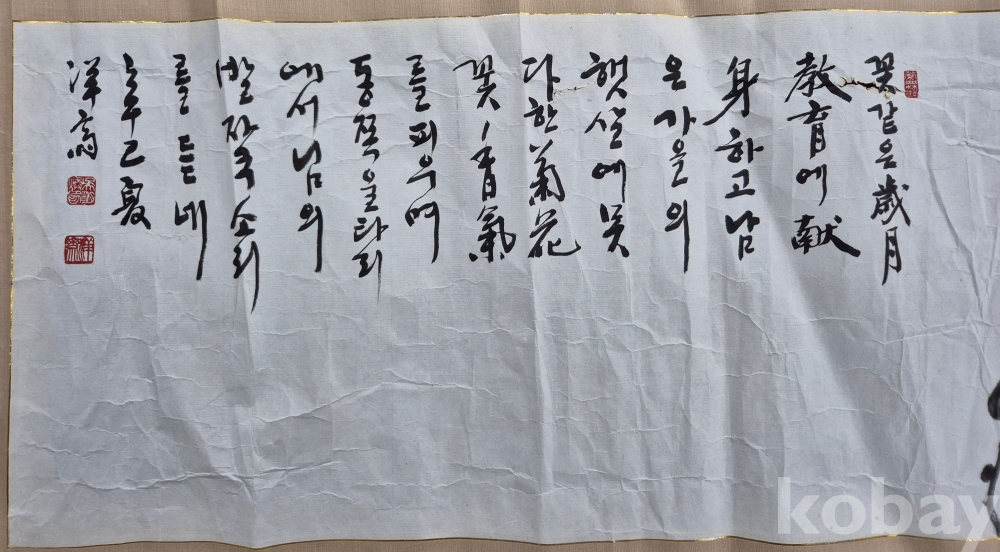 꽃같은 歲月
教育에 献
身하고 남
은 가을의
햇살에 못
다한 菊花
꽃 香氣
를 피우며
동쪽 울타리
에서 님의
발자국 소리
를 듣네
夏
kobay